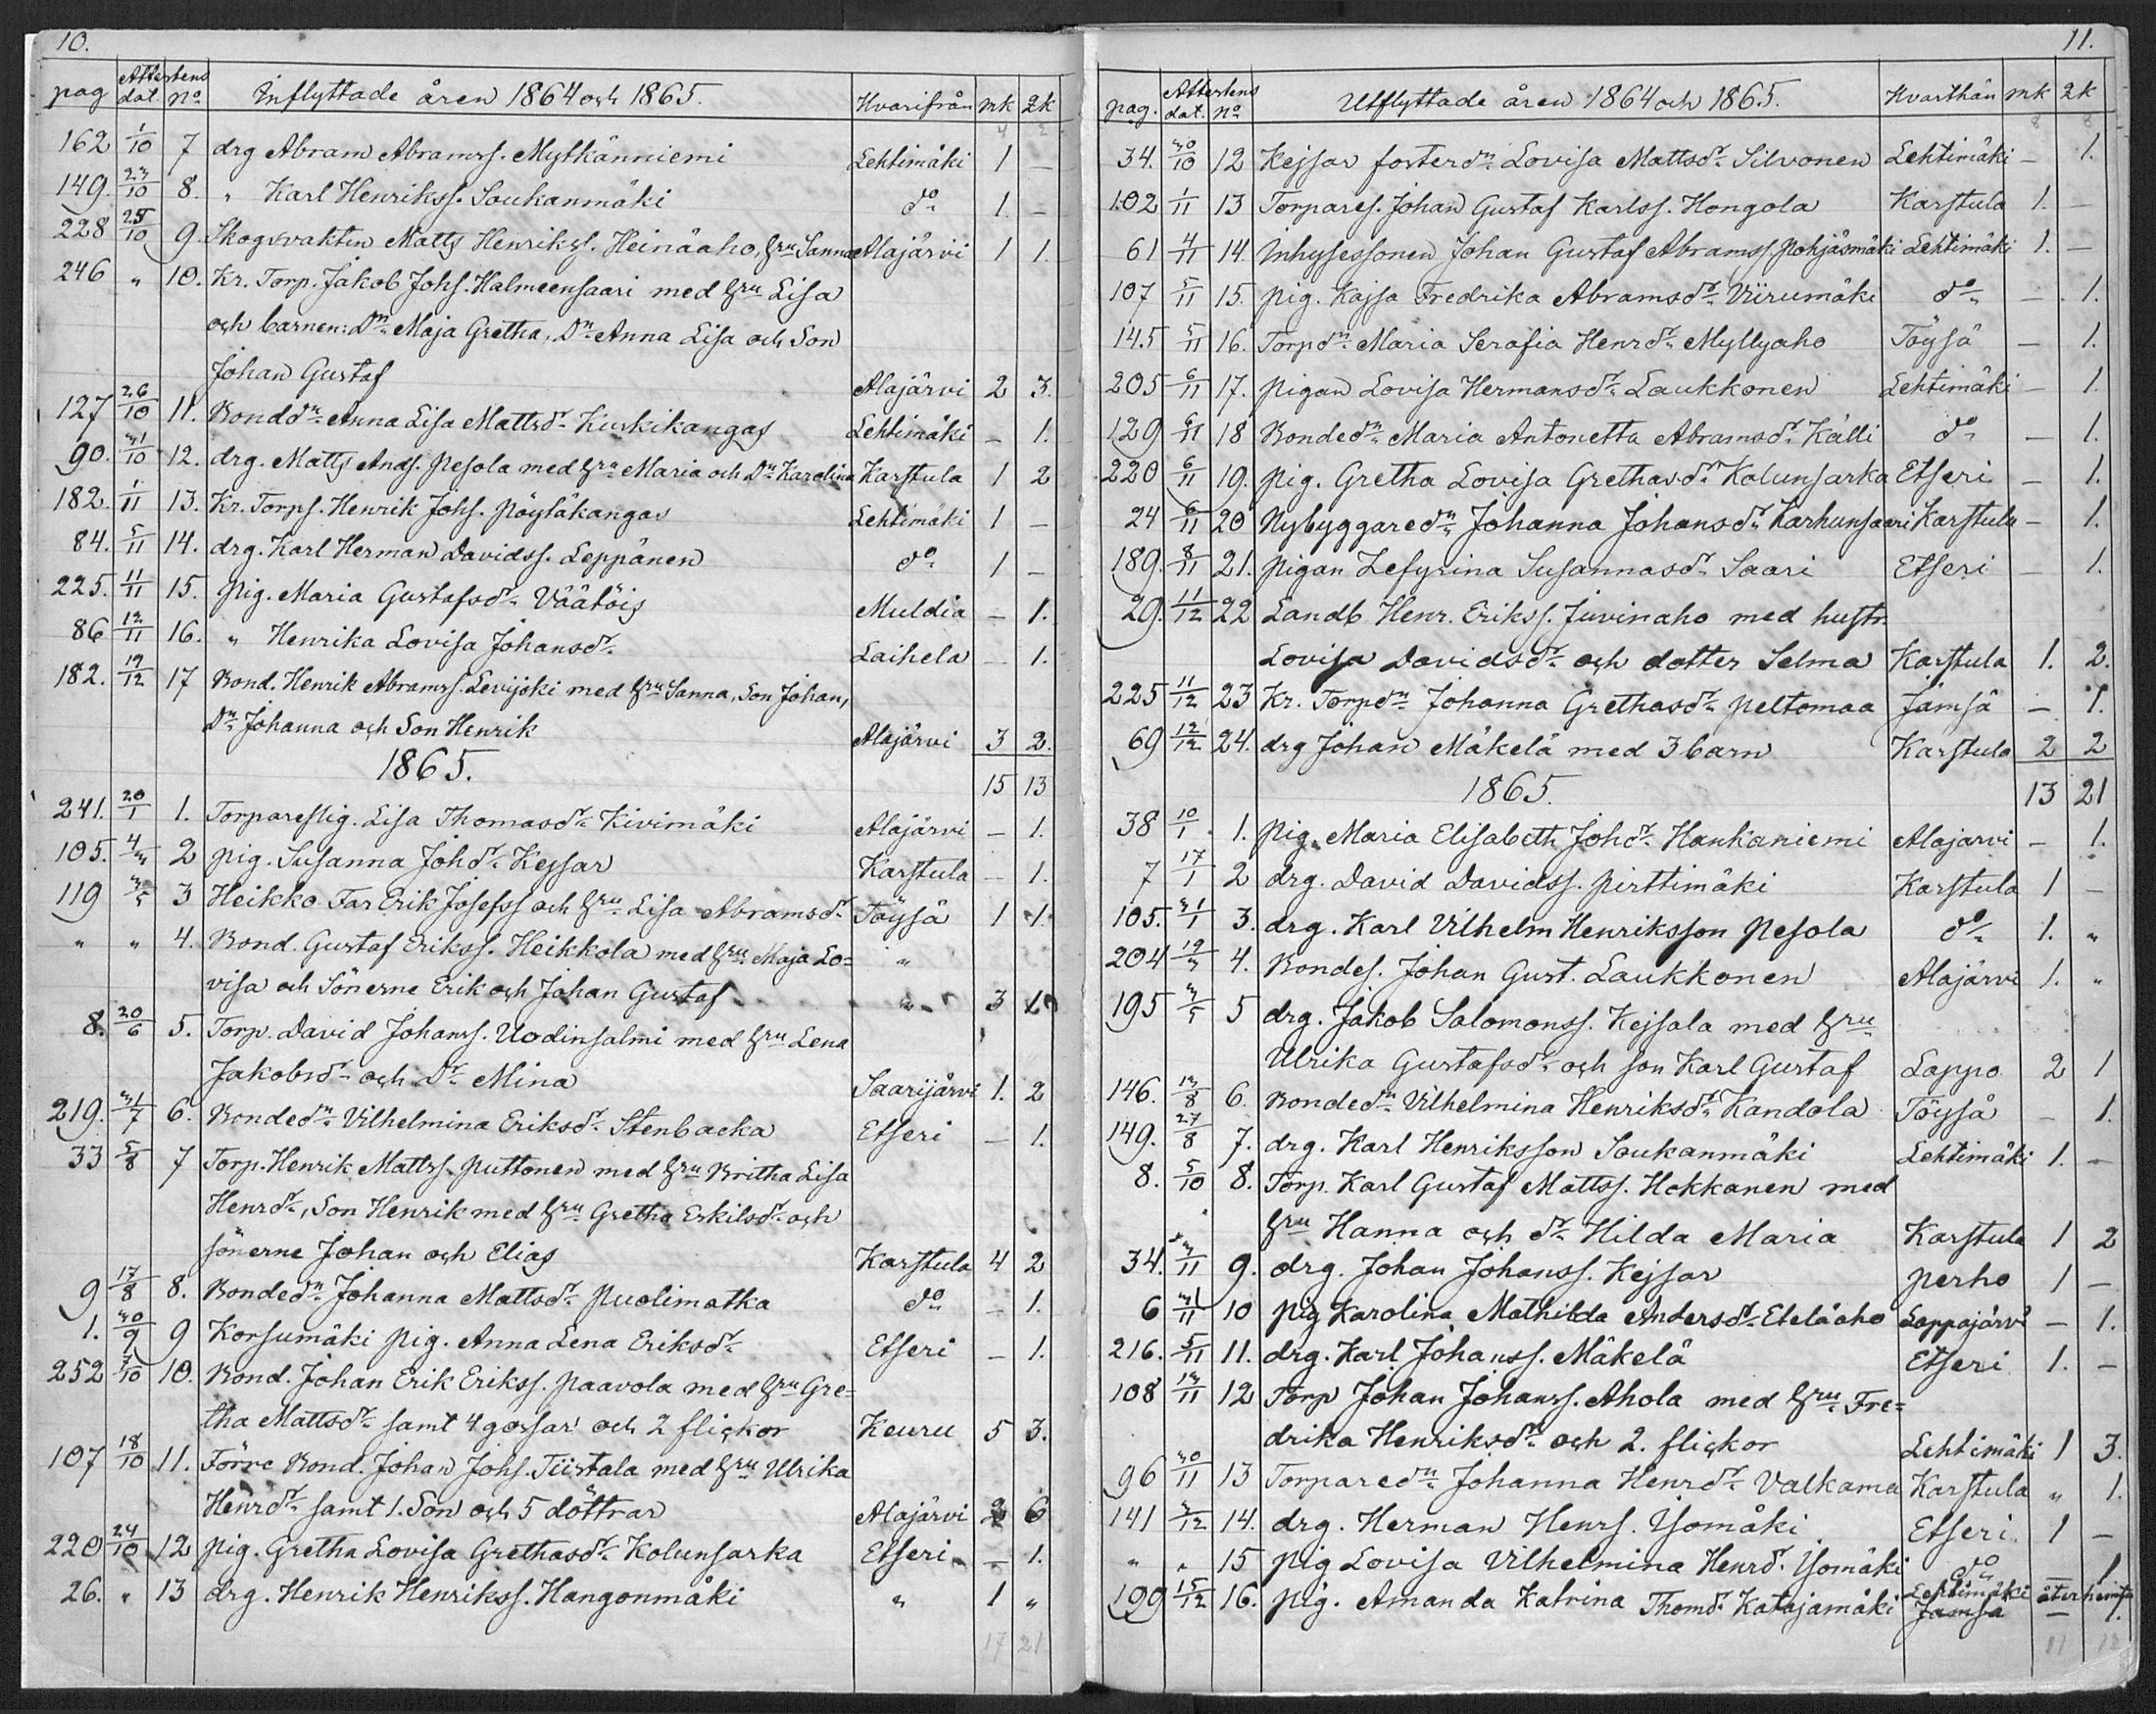 10.
pag Attestens dat. No Inflyttade åren 1864 och 1865. Hvarifrån mk 2k
162 1/10 7 drg Abram Abramss. Mytkänniemi Lehtimäki 1 —
149. 23/10 8. " Karl Henrikss. Soukanmäki do 1. —
228 25/10 9. Skogsvakten Matts Henrikss. Heinäaho, hru Sanna Alajärvi 1 1.
246 " 10. Kr. Torp. Jakob Johs. Halmeensaari med hru Lisa
och barnen: Dn Maja Gretha, Dn Anna Lisa och Son
Johan Gustaf Alajärvi 2 3.
127 26/10 11. Bonddn Anna Lisa Mattsdr Kuskikangas Lehtimäki — 1.
90. 31/10 12. drg. Matts Ands. Pesola med hru Maria och Dn Karolina Karstula 1 2
182. 1/11 13. Kr. Torps. Henrik Johs. Pöytäkangas Lehtimäki 1 —
84. 5/11 14. drg. Karl Herman Davidss. Leppänen do 1 —
225. 11/11 15. Pig. Maria Gustafsdr Väätöis Muldia — 1.
86 12/11 16. " Henrika Lovisa Johansdr Laihela — 1.
182. 19/12 17 Bond. Henrik Abramss. Levijoki med hru Sanna, Son Johan,
Dn Johanna och Son Henrik Alajärvi 3 2.
1865. 15 13
241. 20/1 1. Torpareslig. Lisa Thomasdr Kivimäki Alajärvi — 1.
105. 4/3 2 pig. Susanna Johdr Kejsar Karstula — 1.
119 3/5 3 Heikko. Far Erik Josefss och hru Lisa Abramsdr Töysä 1 1.
" " 4. Bond. Gustaf Erikss. Heikkola med hru Maja Lo= "
visa och Sönerne Erik och Johan Gustaf " 3 1
8. 20/6 5. Torp. David Johanss. Uodinsalmi med hru Lena
Jakobsdr och Dr Mina Saarijärvi 1. 2
219. 31/7 6. Bondedn Vilhelmina Eriksdr Stenbacka Etseri — 1.
33 5/8 7 Torp. Henrik Mattss. Puttonen med hru Britha Lisa
Henrdr, Son Henrik med hru Gretha Eskilsdr och
sönerne Johan och Elias Karstula 4 2
9 17/8 8. Bondedn Johanna Mattsdr Puolimatka do — 1.
1. 30/9 9 Korsumäki pig. Anna Lena Eriksdr Etseri — 1.
252 7/10 10. Bond. Johan Erik Erikss. Paavola med hru Gre=
tha Mattsdr samt 4 gossar och 2 flickor Keuru 5 3.
107 18/10 11. Förre Bond. Johan Johs. Tiistala med hru Ulrika
Henrdr samt 1. Son och 5 döttrar Alajärvi 2 6
220 24/10 12 pig. Gretha Lovisa Grethasdr Kolunsarka Etseri — 1.
26. " 13 drg. Henrik Henrikss. Hangonmäki " 1 "
17 21
11.
pag. Attestens dat. No Utflyttade åren 1864 och 1865. Hvarthän mk 2k
34. 30/10 12 Kejsar fosterdn Lovisa Mattsdr Silvonen Lehtimäki — 1.
102 1/11 13 Torpares. Johan Gustaf Karlss. Hongola Karstula 1. —
61 4/11 14. Inhysessonen Johan Gustaf Abramss. Pohjäsmäki Lehtimäki 1. —
107 5/11 15. pig. Kajsa Fredrika Abramsdr Viirumäki do — 1.
145 5/11 16. Torpdn Maria Serafia Henrdr Myllyaho Töysä — 1.
205 6/11 17. Pigan Lovisa Hermansdr Laukkonen Lehtimäki — 1.
129 6/11 18 Bondedn Maria Antonetta Abramsdr Källi do — 1.
220 6/11 19. pig. Gretha Lovisa Grethasdr Kolunsarka Etseri — 1.
24 6/11 20 Nybyggaredn Johanna Johansdr Karhunsaari Karstula — 1.
189. 8/11 21. pigan Zefyrina Susannasdr Saari Etseri — 1.
29. 11/12 22 Landb Henr. Erikss. Juvinaho med hustr.
Lovisa Davidsdr och dotter Selma Karstula 1. 2.
225 11/12 23 Kr. Torpdn Johanna Grethasdr Peltomaa Jämsä — 1.
69 12/12 24. drg Johan Mäkelä med 3 barn Karstula 2 2
1865. 13 21
38 10/1 1. Pig. Maria Elisabeth Johdr Hankaniemi Alajarvi — 1.
7 17/1 2 drg. David Davidss. Pirttimäki Karstula 1 —
105. 31/1 3. drg. Karl Vilhelm Henriksson Pesola do 1. "
204 19/3 4. Bondes. Johan Gust. Laukkonen Alajärvi 1. "
195 3/5 5 drg. Jakob Salomonss. Kejsala med hru
Ulrika Gustafsdr och son Karl Gustaf Lappo 2 1
146. 13/8 6. Bondedn Vilhelmina Henriksdr Kandola Töysä — 1.
149. 27/8 7. drg. Karl Henriksson Soukanmäki Lehtimäki 1. —
8. 5/10 8. Torp. Karl Gustaf Mattss. Hokkanen med
hru Hanna och dr Hilda Maria Karstula 1 2
34. 3/11 9. drg. Johan Johanss. Kejsar Perho 1 —
6 31/11 10 pig Karolina Mathilda Andersdr Eteläaho Lappajärvi — 1.
216. 5/11 11. drg. Karl Johanss. Mäkelä Etseri 1. —
108 13/11 12 Torp Johan Johanss. Ahola med hru Fre=
drika Henriksdr och 2. flickor Lehtimäki 1 3.
96 30/11 13 Torparedn Johanna Henrdr Valkama Karstula " 1.
141 3/12 14. drg. Herman Henrs. Ysomäki Etseri 1 —
" " 15 pig Lovisa Vilhelmina Henrd. Ysomäki do — 1
199 15/12 16. pig. Amanda Katrina Thomd. Katajamäki Lehtimäki återhemta
Jämsä — 1.
11 12